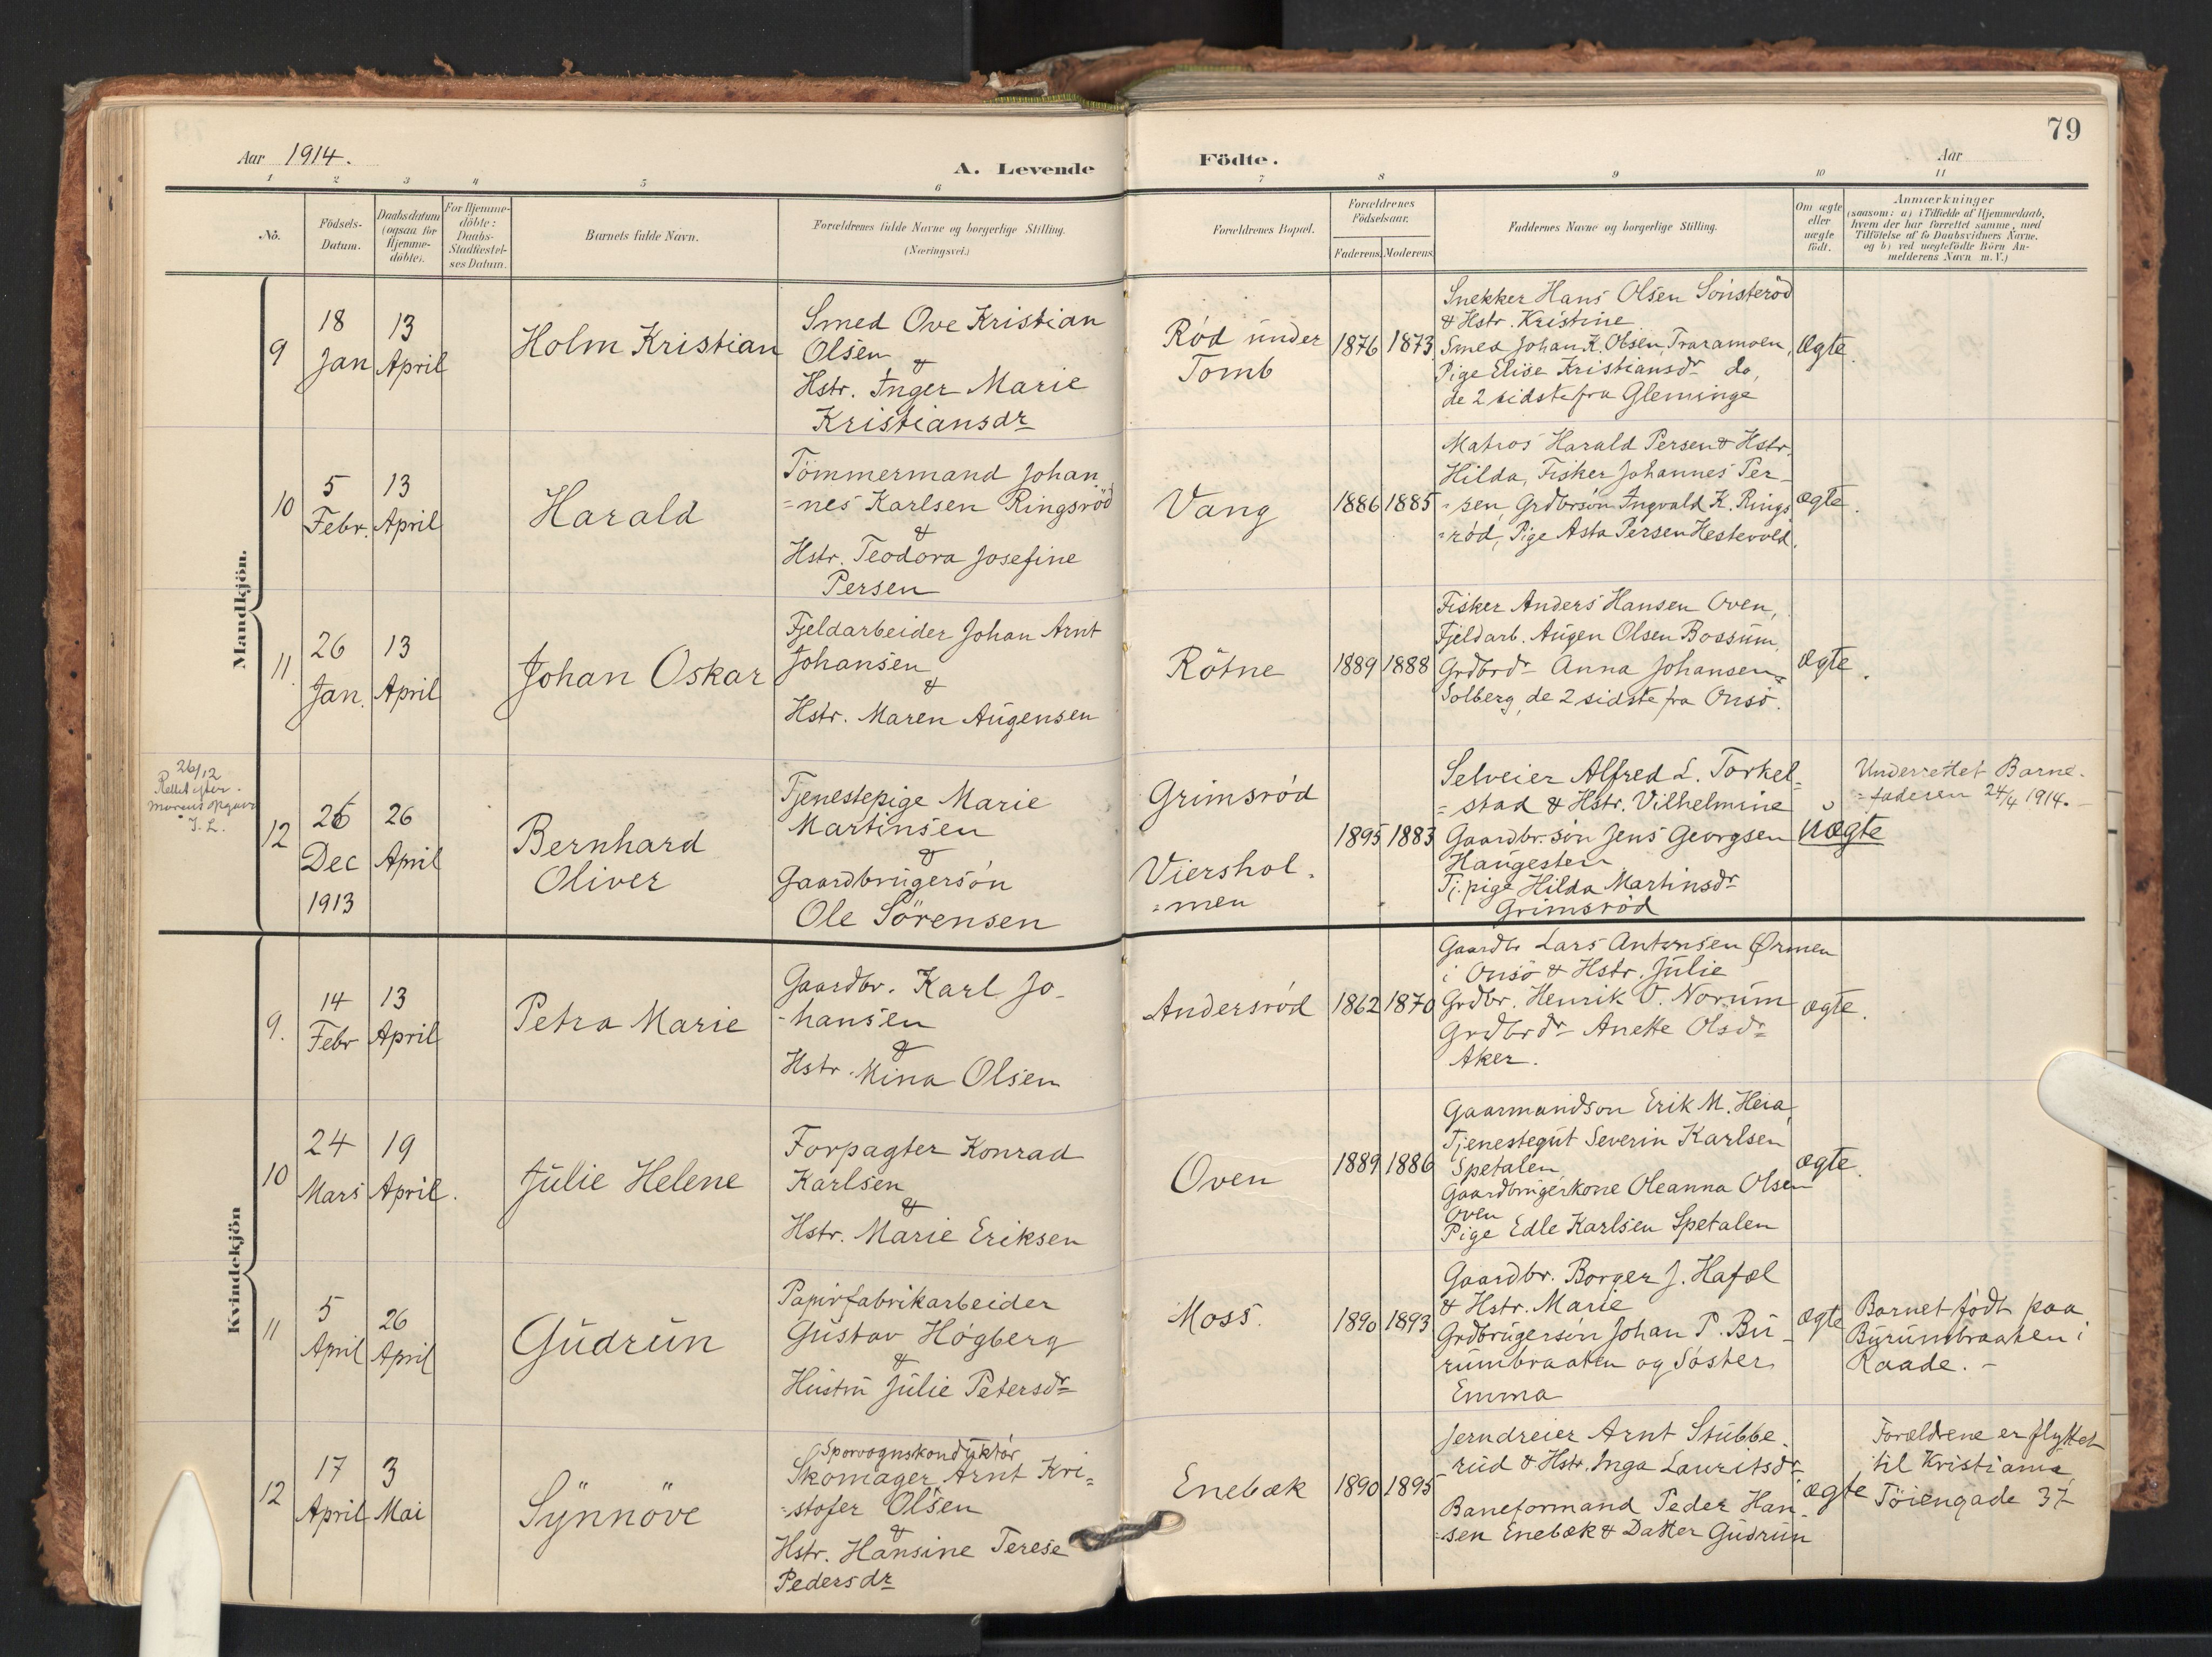 79
Aar 1914.
A. Levende Födte.
Aar
1 2 3 4 5 6 7 8 9 10 11
No.
Födsels-
Datum.
Daabsdatum
(ogsaa for
Hjemme-
döbte).
For Hjemme-
döbte:
Daabs-
Stadfæstel-
ses Datum.
Barnets fulde Navn.
Forældrenes fulde Navne og borgerlige Stilling.
(Næringsvei.)
Forældrenes Bopæl.
Forældrenes
Födselsaar.
Faderens. Moderens.
Faddernes Navne og borgerlige Stilling.
Om ægte
eller
uægte
födt.
Anmærkninger
(saasom: a) i Tilfælde af Hjemmedaab,
hvem der har forrettet samme, med
Tilföielse af to Daabsvidners Navne,
og b) ved uægtefödte Börn An-
melderens Navn m. V.)
Mandkjön.
9
18
Jan
13
April
Holm Kristian
Smed Ove Kristian
Olsen
&
Hstr. Inger Marie
Kristiansdr
Röd under
Tomb
1876 1873
Snekker Hans Olsen Sönsteröd
& Hstr. Kristine
Smed Johan K. Olsen, Traramoen,
Pige Elise Kristiansdr do,
de 2 sidste fra Gleminge
Ægte.
10
5
Febr.
13
April
Harald
Tömmermand Johan
=nes Karlsen Ringsröd
&
Hstr. Teodora Josefine
Persen
Vang
1886 1885
Matros Harald Persen & Hstr.
Hilda, Fisker Johannes Per-
-sen, Grdbrsön Ingvald K. Rings
=röd, Pige Asta Persen Hestevold.
ægte.
11.
26
Jan.
13
April
Johan Oskar
Fjeldarbeider Johan Arnt
Johansen
&
Hstr. Maren Augensen
Rötne
1889 1888
Fisker Anders Hansen Oven,
Fjeldarb. Augen Olsen Bossum,
Grdbrdr Anna Johansen
Solberg, de 2 sidste fra Onsö.
Ægte.
26/12
Rettet efter
Morens Opgave
J. L.
12
26
Dec
1913
26
April
Bernhard
Oliver
Tjenestepige Marie
Martinsen
&
Gaardbrugersön
Ole Sörensen
Grimsröd
Viershol-
=men
1895 1883
Selveier Alfred L. Torkel=
=stad & Hstr. Vilhelmine
Gaardbr.sön Jens Georgsen
Haugesten
Tj.pige Hilda Martinsdr
Grimsröd
Uægte
Underrettet Barne-
=faderen 24/4 1914.-
Kvindekjön
9.
14
Febr
13
April
Petra Marie
Gaardbr. Karl Jo-
-hansen
&
Hstr. Mina Olsen
Andersröd
1862 1870
Gaardbr Lars Antonsen Ørmen
i Onsö & Hstr. Julie
Grdbr. Henrik O. Norum
Grdbrdr Anette Olsdr
Aker.
ægte.
10
24
Mars
19
April.
Julie Helene
Forpagter Konrad
Karlsen
&
Hstr. Marie Eriksen
Oven
1889 1886
Gaarmandsön Erik M. Heia,
Tjenestegut Severin Karlsen
Spetalen
Gaardbrugerkone Oleanna Olsen
Oven
Pige Edle Karlsen Spetalen
ægte.
11
5
April
26
April
Gudrun
Papirfabrikarbeider
Gustav Högberg
&
Hustru Julie Petersdr
Moss.
1890 1893
Gaardbr. Borger J. Hafæl
& Hstr. Marie
Grdbrugersön Johan P. Bu-
rumbraaten og Söster
Emma
Ægte
Barnet födt paa
Burumbraaten i
Raade. -
12
17
April
3
Mai
Synnöve
Sporvognskonduktör
Skomager Arnt Kri=
=stofer Olsen
&
Hstr. Hansine Terese
Pedersdr
Enebæk
1890 1895
Jerndreier Arnt Stubbe-
rud & Hstr. Inga Lauritsdr
Baneformand Peder Han-
=sen Enebæk & Datter Gudrun
ægte
Forældrene er flyttet
til Kristiania,
Töiengade 37